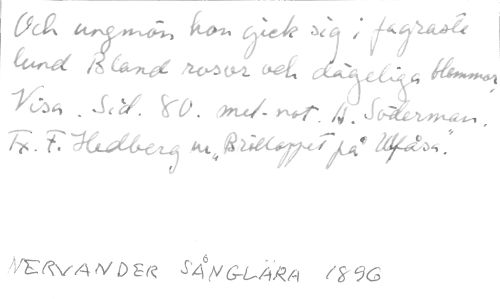 Och ungmön hon gick sig i fagraste
lund Bland rosor och dägeliga blommor
Visa. Sid. 80. met. not. A. Söderman.
Tx. F. Hedberg ur „Bröllopet på Ulfåsa".
NERVANDER SÅNGLÄRA 1896